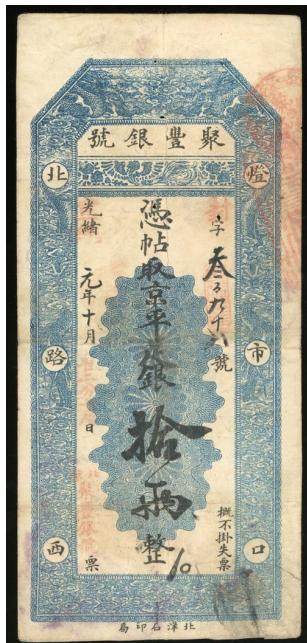 聚豐銀號
燈市口
北路西
字叁百九十八號
憑帖取京平足銀拾兩整
10
光緒元年十月 日
票
概不掛失票
北洋石印局